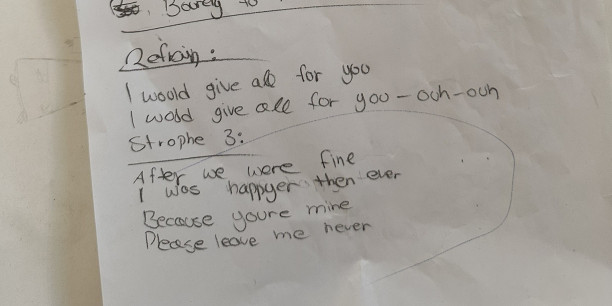 Barely to
Refrain:
I would give all for you
I wold give all for you - ouh - ouh
Strophe 3:
After we were fine
I was happyer then ever
Because youre mine
Please leave me never